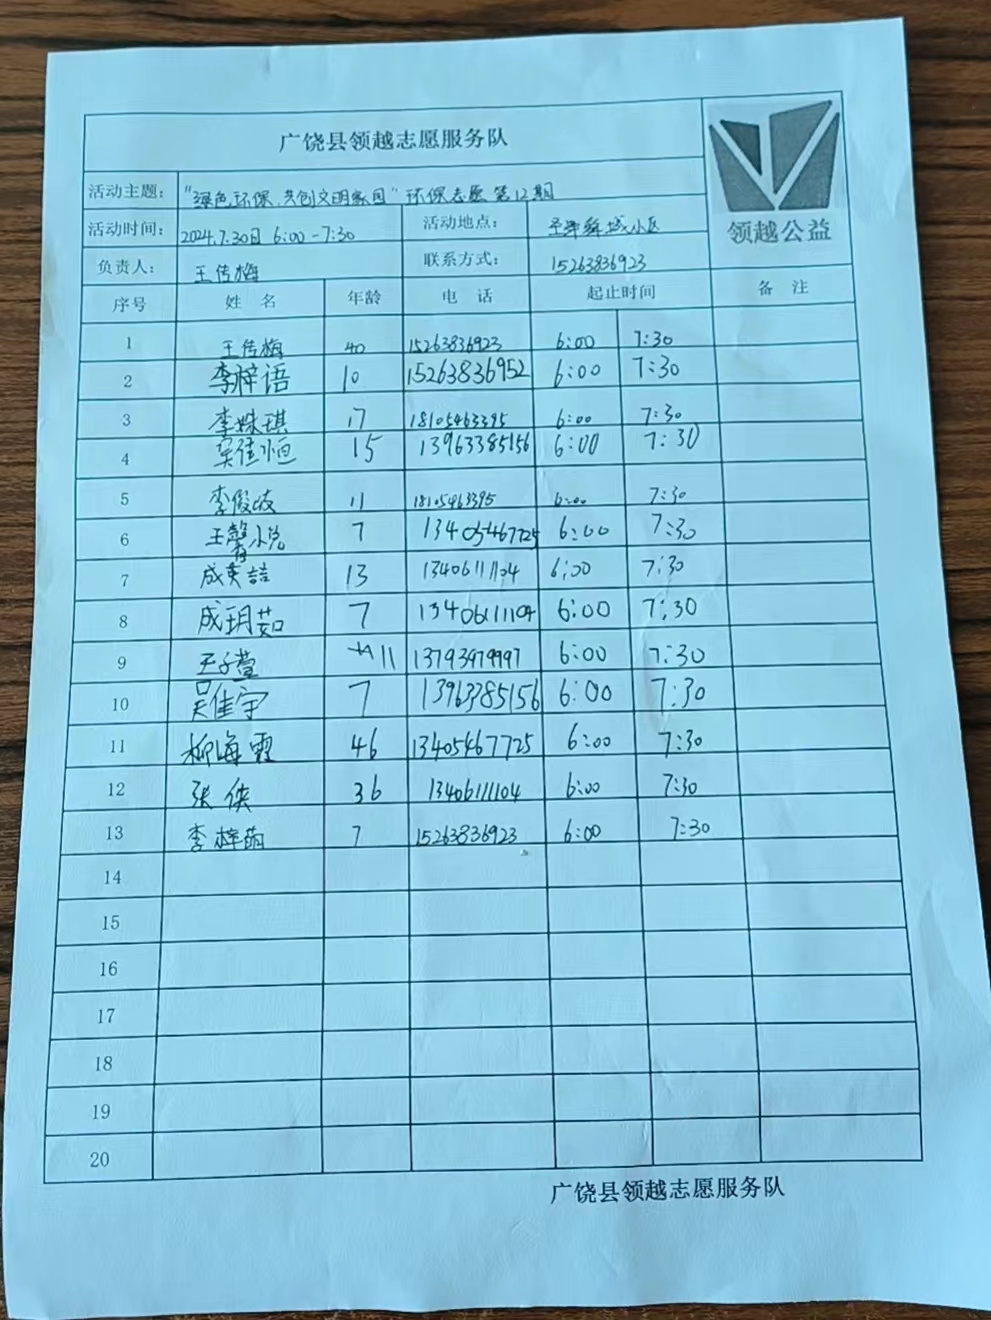 广饶县领越志愿服务队
领越公益
活动主题： "绿色环保.共创文明家园" 环保志愿 第12期
活动时间： 2024.7.30日 6:00-7:30 活动地点： 舜城小区
负责人： 王传梅 联系方式： 15263836923
序号 姓 名 年龄 电 话 起止时间 备 注
1 王传梅 40 15263836923 6:00 7:30
2 李梓语 10 15263836952 6:00 7:30
3 李姝琪 17 18105463395 6:00 7:30
4 15 13963385156 6:00 7:30
5 11 18105463395 6:00 7:30
6 王馨悦 7 13405467725 6:00 7:30
7 成英喆 13 13406111104 6:00 7:30
8 成玥茹 7 13406111104 6:00 7:30
9 王子萱 11 13793479797 6:00 7:30
10 吴佳宇 7 13963385156 6:00 7:30
11 柳海霞 46 13405467725 6:00 7:30
12 张侠 36 13406111104 6:00 7:30
13 李梓萌 7 15263836923 6:00 7:30
14
15
16
17
18
19
20
广饶县领越志愿服务队